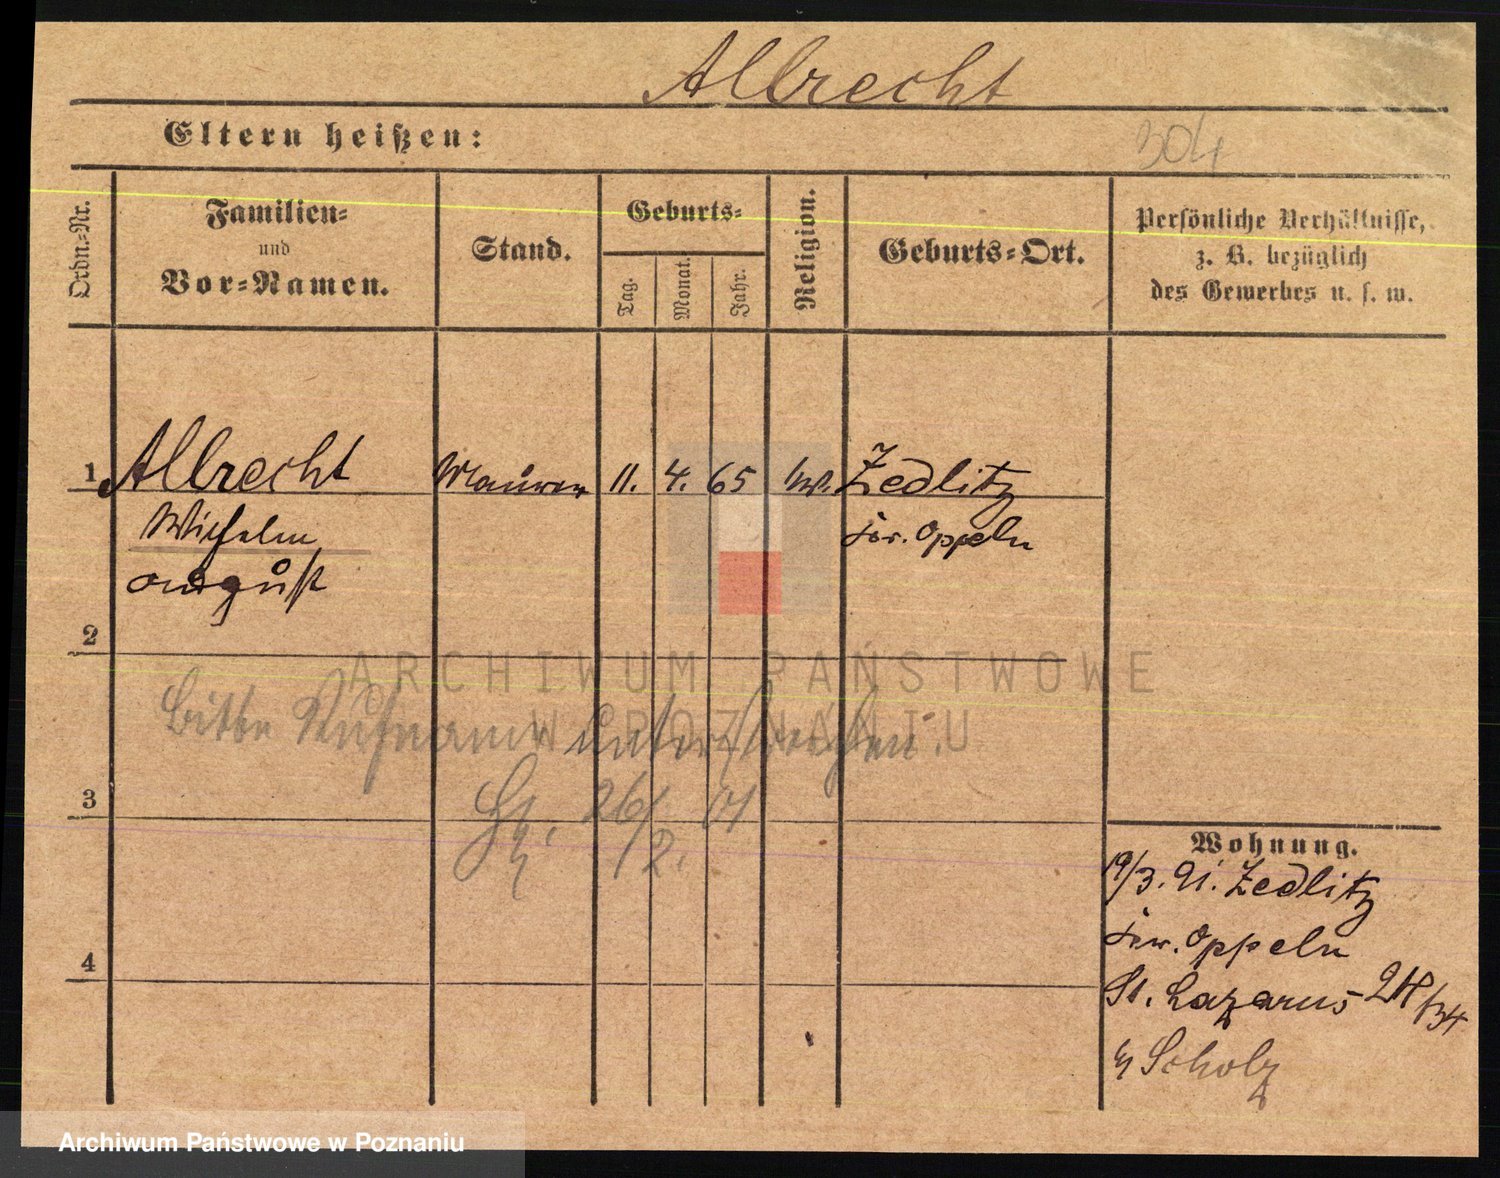 Albrecht
Eltern heißen:
304
Ordn.-Nr.
Familien-
und
Vor-Namen.
Stand.
Geburts-
Tag.
Monat.
Jahr.
Religion.
Geburts-Ort.
Persönliche Verhältnisse,
z. B. bezüglich
des Gewerbes u. s. w.
1 Albrecht Maurer 11. 4. 65 Zedlitz
Wilhelm Oppeln
August
2
ARCHIWUM PAŃSTWOWE
W POZNANIU
Bitte Rufname unterstreichen.
26/2. 01
3
Wohnung.
19/3. 91. Zedlitz
Oppeln
4
St. Lazarus 24/34
Scholz
Archiwum Państwowe w Poznaniu